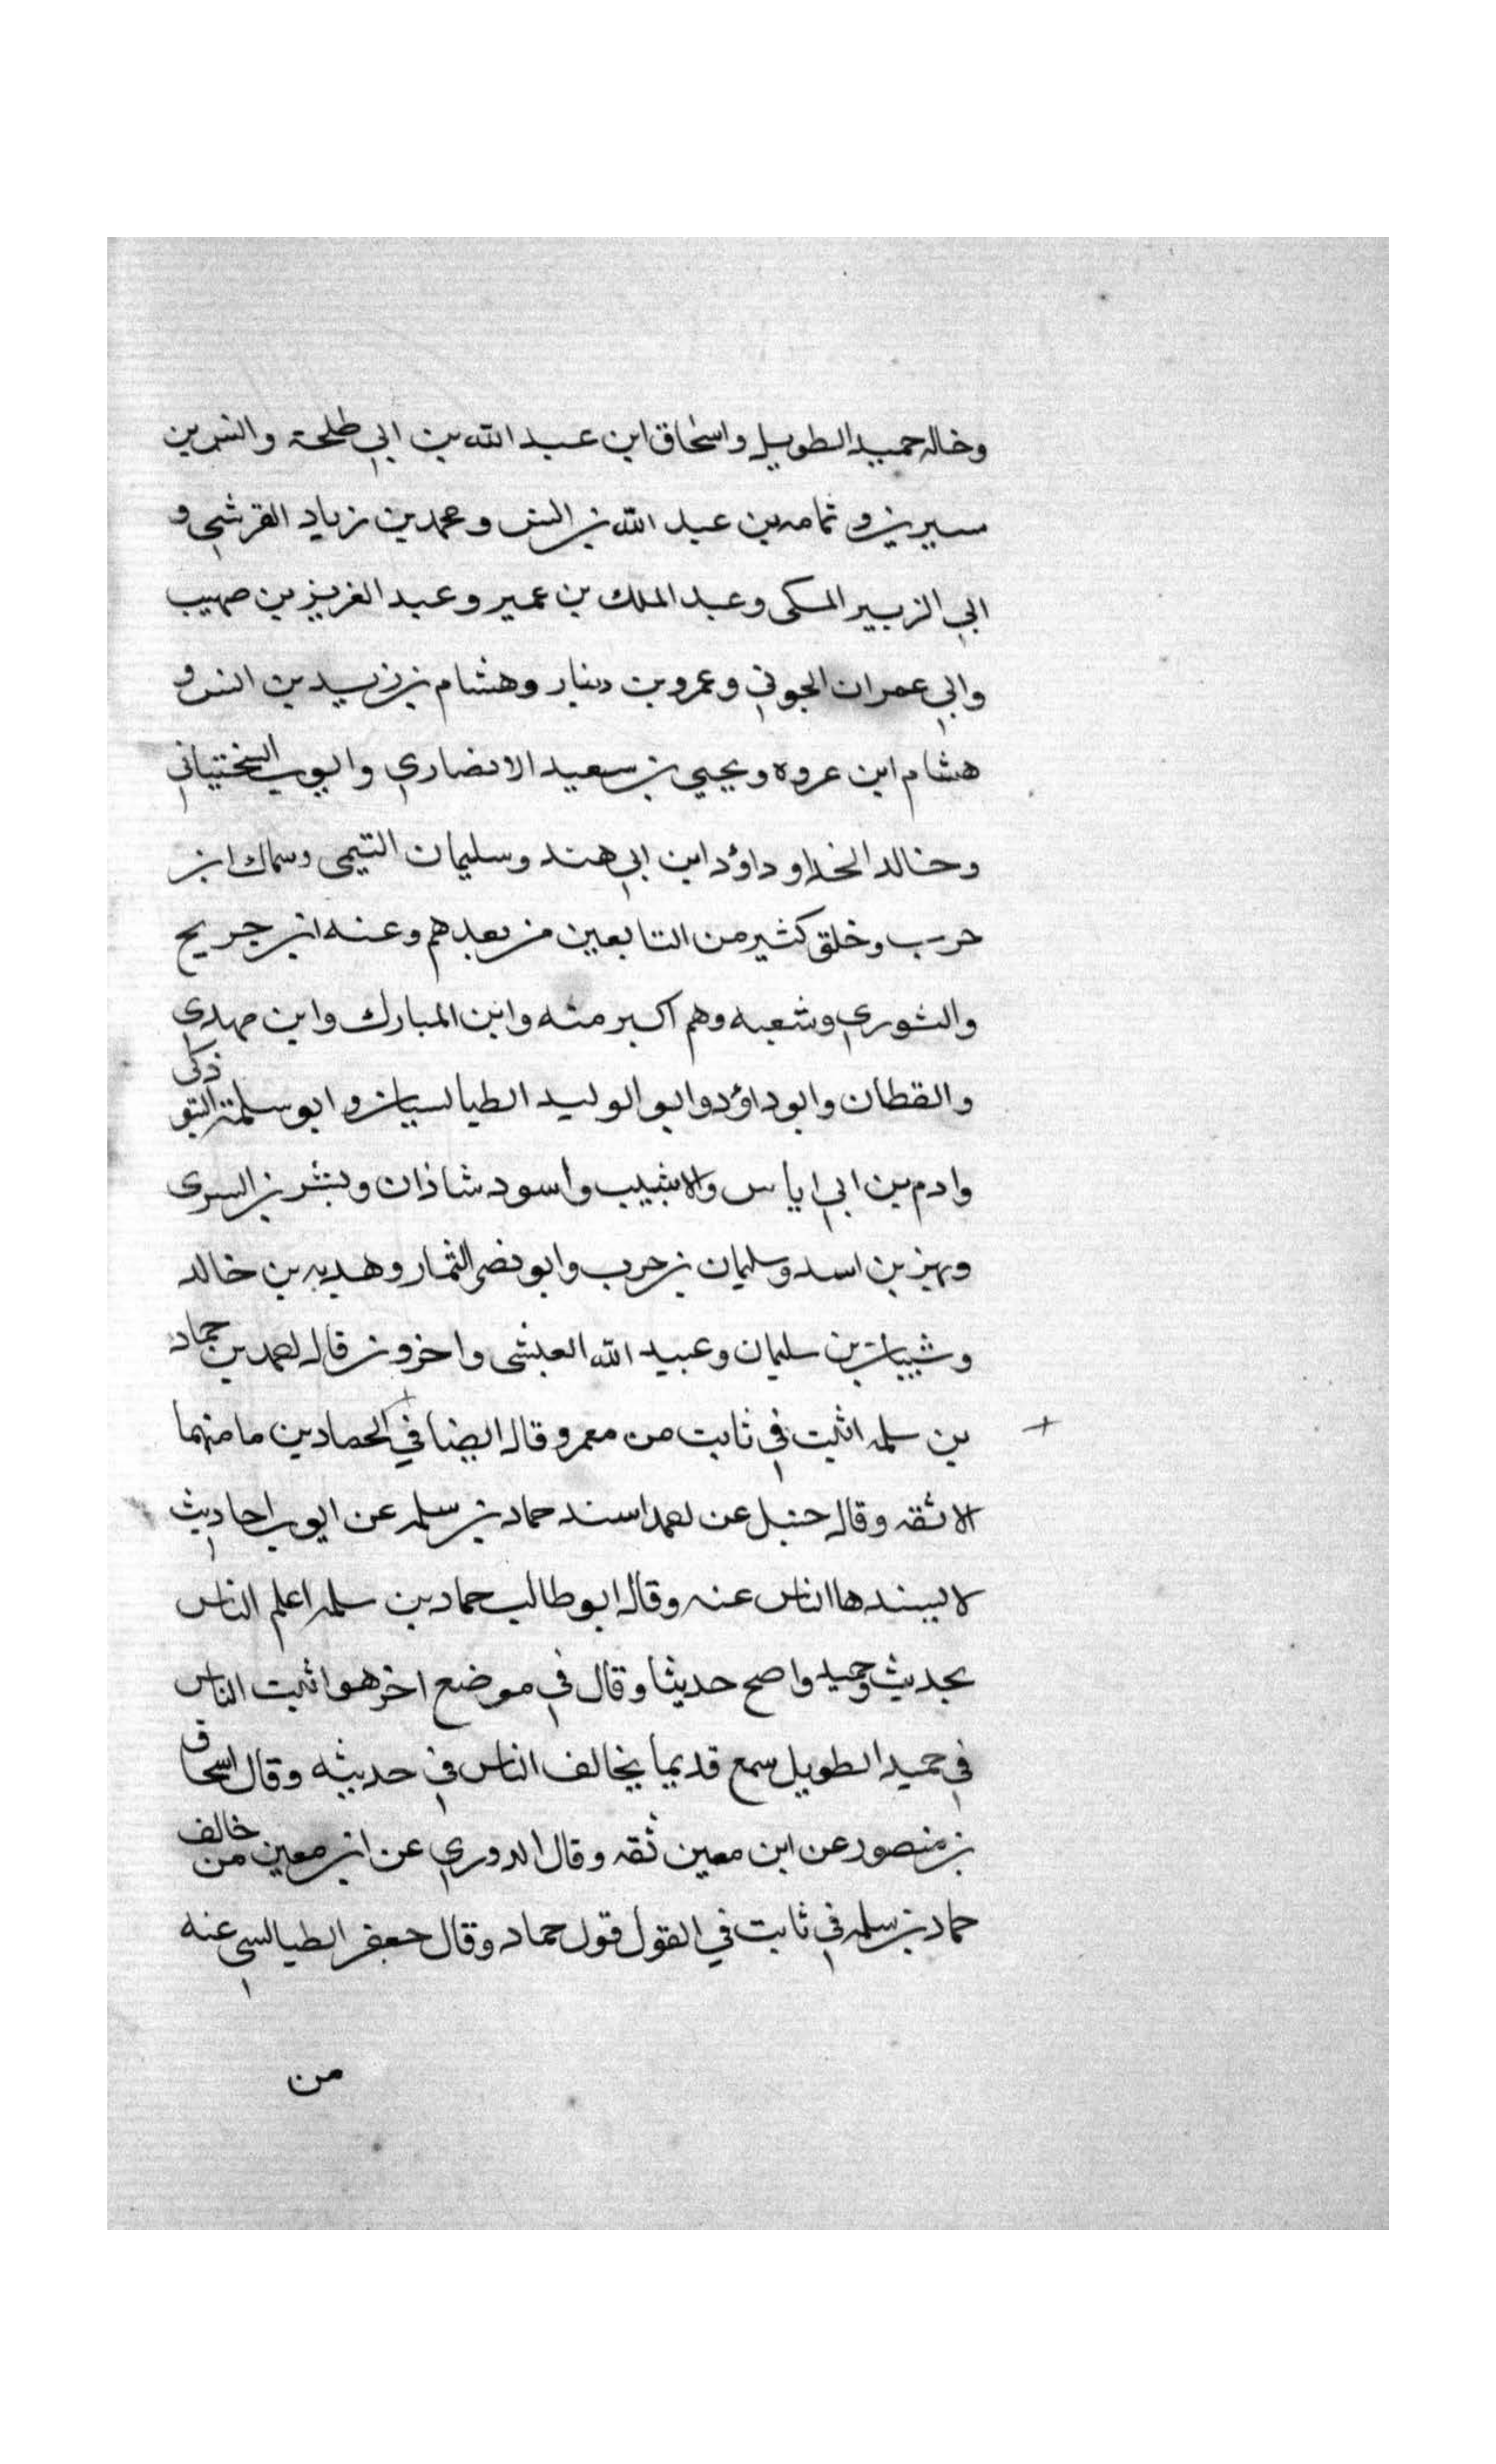 وخاله حميد الطويل واسحاق ابن عبد الله بن ابي طلحة وانس بن
سيرين و ثمامه بن عبد الله بن انس و محمد بن زياد القرشي و
ابي الزبير المكى وعبد الملك بن عمير وعبد العزيز بن صهيب
وابي عمران الجوني وعمرو بن دينار وهشام بن زيد بن انس و
هشام ابن عروه ويحيي بن سعيد الانصاري وايوب السختياني
وخالد الحذا و داؤد ابن ابي هند وسليمان التيمى وسماك ابن
حرب وخلق كثير من التابعين من بعدهم وعنه ابن جريح
والثوري وشعبه وهم اكبر منه وابن المبارك وابن مهدي
والقطان وابو داؤد وابو الوليد الطيالسيان وابو سلمة التبوذكى
وادم بن ابي اياس والاشيب واسود شاذان وبشر بن السرى
وبهز بن اسد وسليمان بن حرب وابو نصر التمار وهدبه بن خالد
وشيبان بن سليمان وعبيد الله العيشى واخرون قال احمد بن حماد
بن سلمه اثبت في ثابت من معمر وقال ايضا في الحمادين ما منهما
الا ثقه وقال حنبل عن احمد اسند حماد بن سلمه عن ايوب احاديث
لا يسندها الناس عنه وقال ابو طالب حماد بن سلمه اعلم الناس
بحديث حميد واصح حديثا وقال في موضع اخر هو اثبت الناس
في حميد الطويل سمع قديما يخالف الناس في حديثه وقال اسحاق
بن منصور عن ابن معين ثقه وقال الدوري عن ابن معين من خالف
حماد بن سلمه في ثابت في القول قول حماد وقال جعفر الطيالسي عنه
من